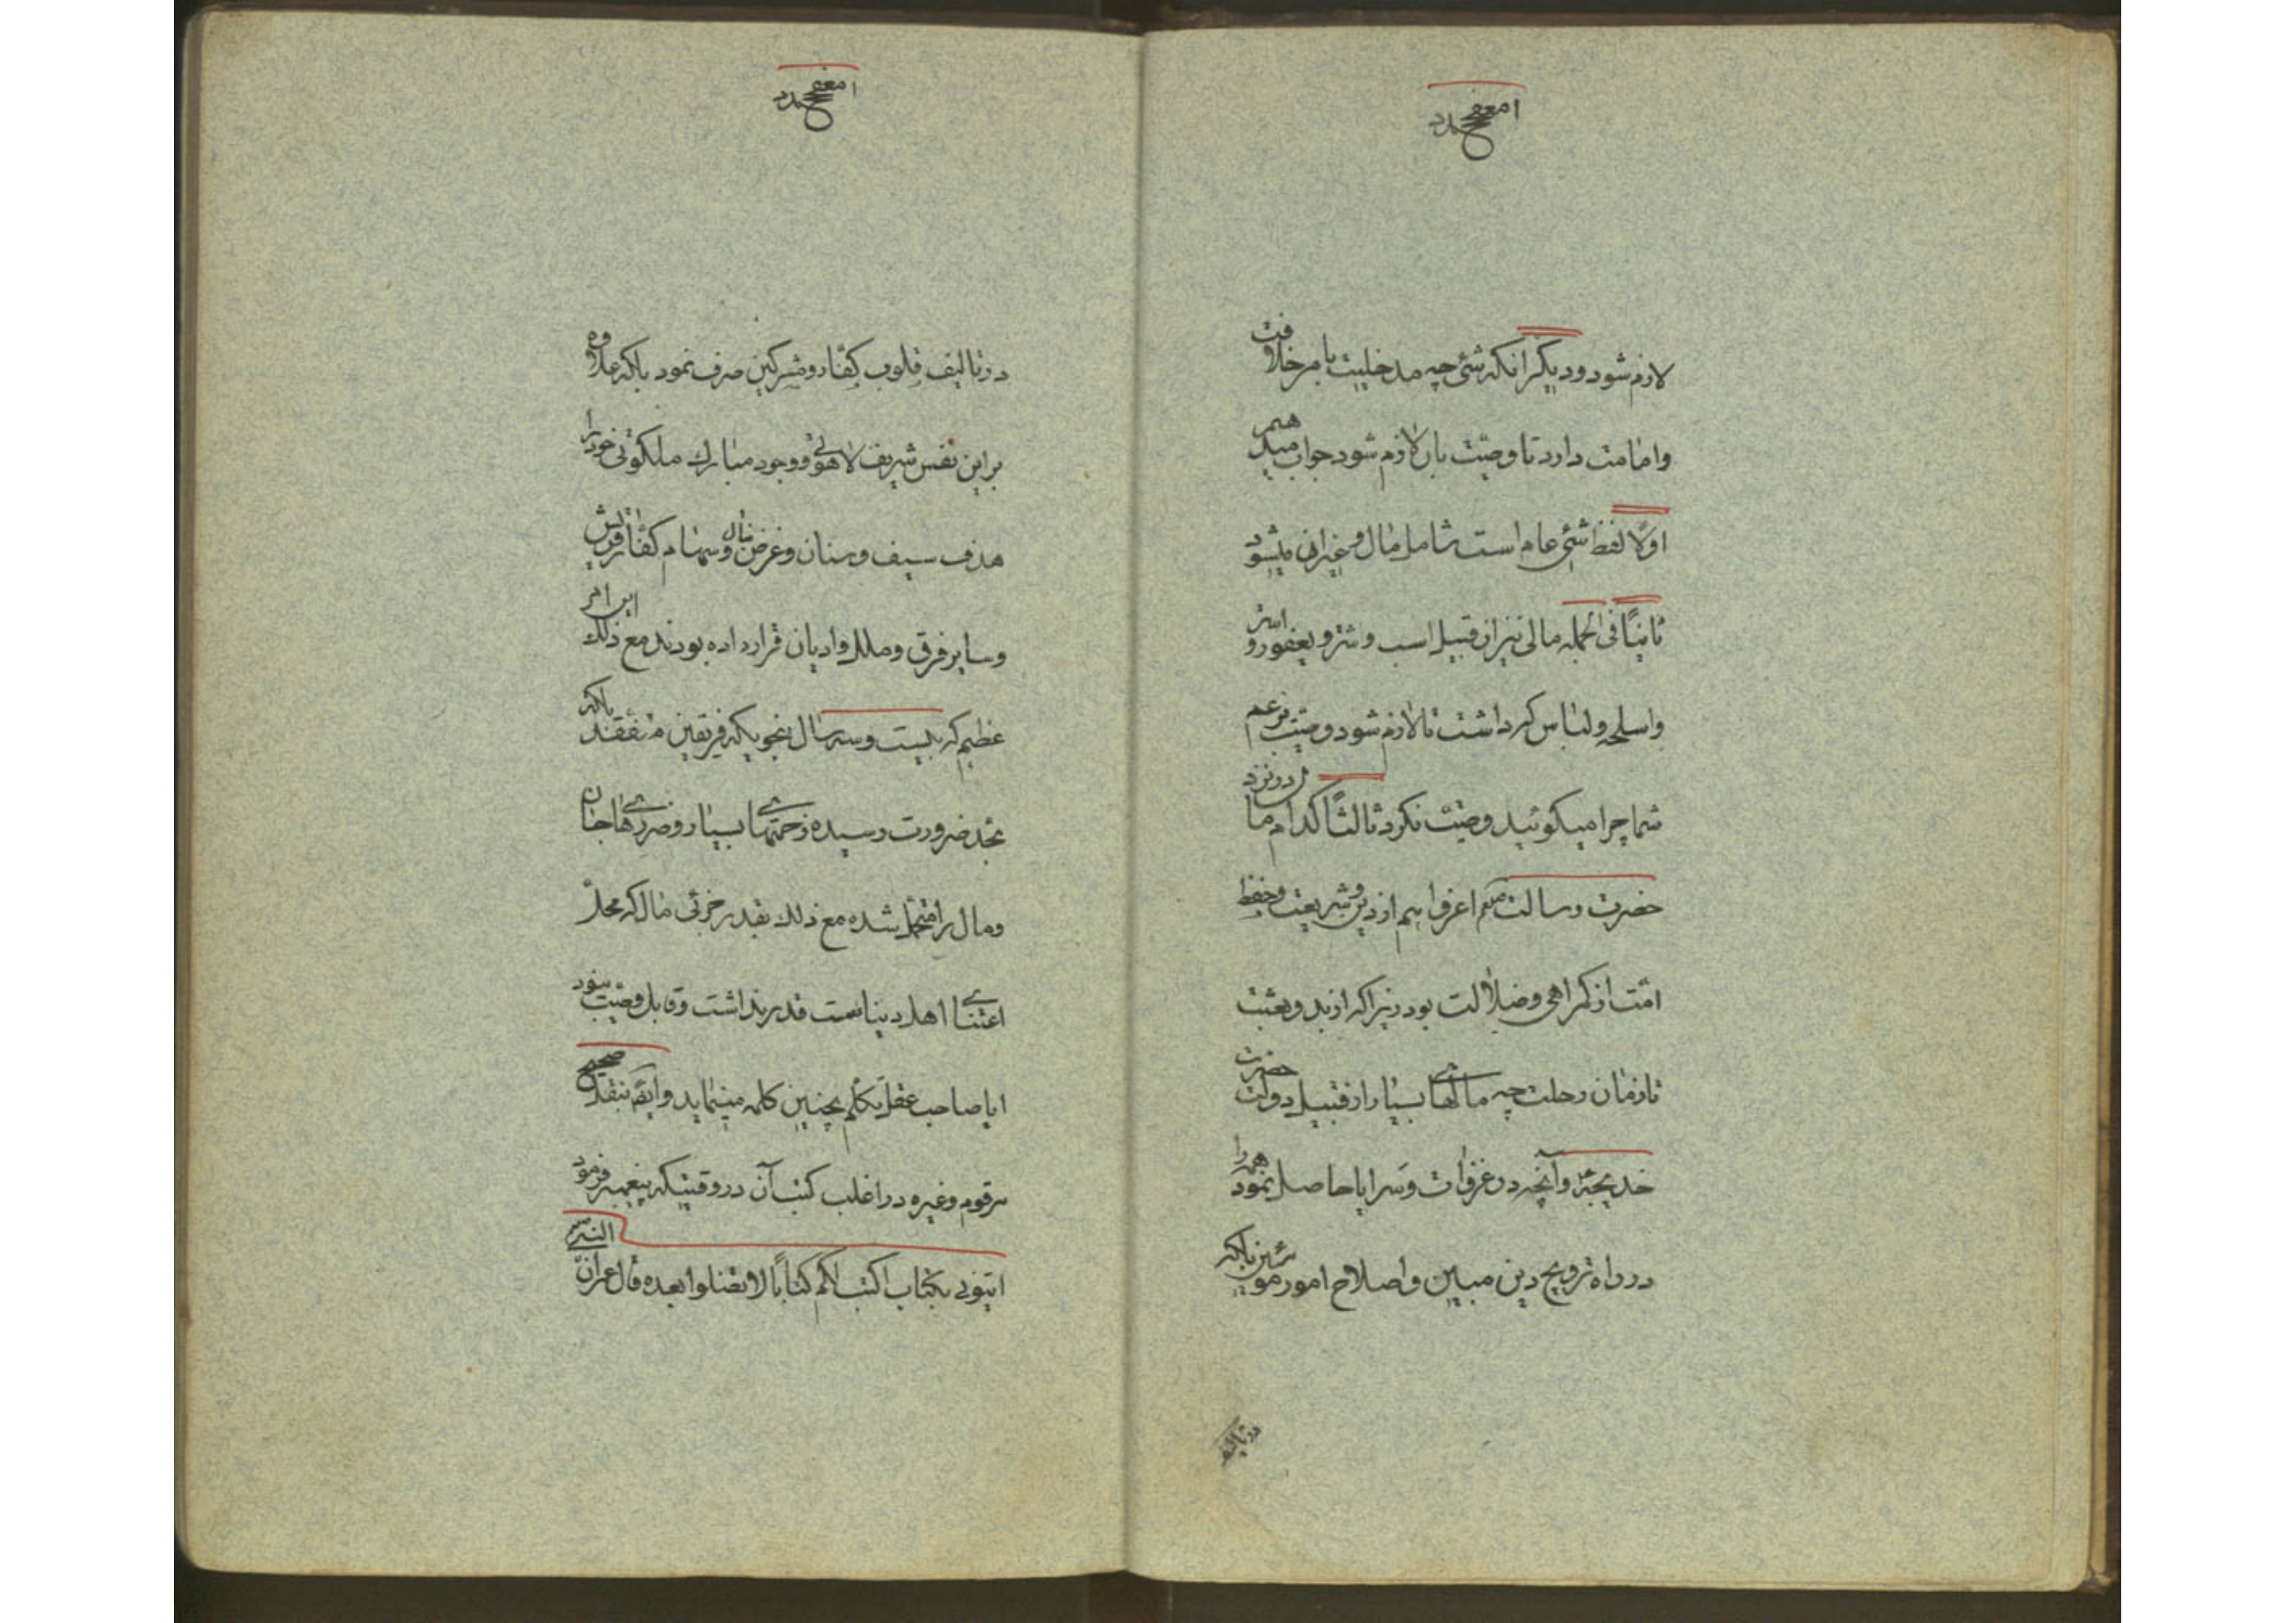 لازم شود و دیگر انکه شئی چه مدخلیت بامر خلافت
وامامت دارد تا وصیت بان لازم شود جواب میدهم
اولًا لفظ شئی عام است شامل مال و غیر ان میشود
ثانیًا فی الجمله مالی نیز از قبیل اسب و شتر و یعفور و استر
واسلحه ولباس که داشت تا لازم شود وصیت بزعم
شما چرا میکوئید وصیت نکرد ثالثًا کدام مال در نزد
حضرت رسالت اعز و اهم از دین و شریعت و حفظ
امت از کمراهی و ضلالت بود زیرا که از بدو بعثت
تا زمان رحلت چه مالهای بسیار از قبیل دولت حضرت
خدیجه و آنچه در غزوات و سرایا حاصل نمود همه را
در راه ترویج دین مبین و اصلاح امور مومنین بلکه
در تالیف
در تالیف قلوب کفار و مشرکین صرف نمود بلکه علاوه
براین نفس شریف لاهوتی و وجود مبارک ملکوتی خود را
هدف سیف و سنان و غرض نبال و سهام کفار قریش
وسایر فرق و ملل و ادیان قرار داده بودند مع ذلک این امر
عظیم که بیست و سه سال بنحویکه فریقین متفقند بلکه
بحد ضرورت رسیده زحمتهای بسیار و ضررهای جان
ومال را متحمل شده مع ذلک بقدر جزئی مال که محل
اعتنای اهل دنیا است قدر نداشت و قابل وصیت نبود
ایا صاحب عقل تکلم بچنین کلمه مینماید و
مرقوم و غیره در اغلب کتب آن در وقتیکه پیغمبر فرمود
ایتونی بکتاب اکتب لکم کتابًا لا تضلوا بعده قال عمر ان النبی